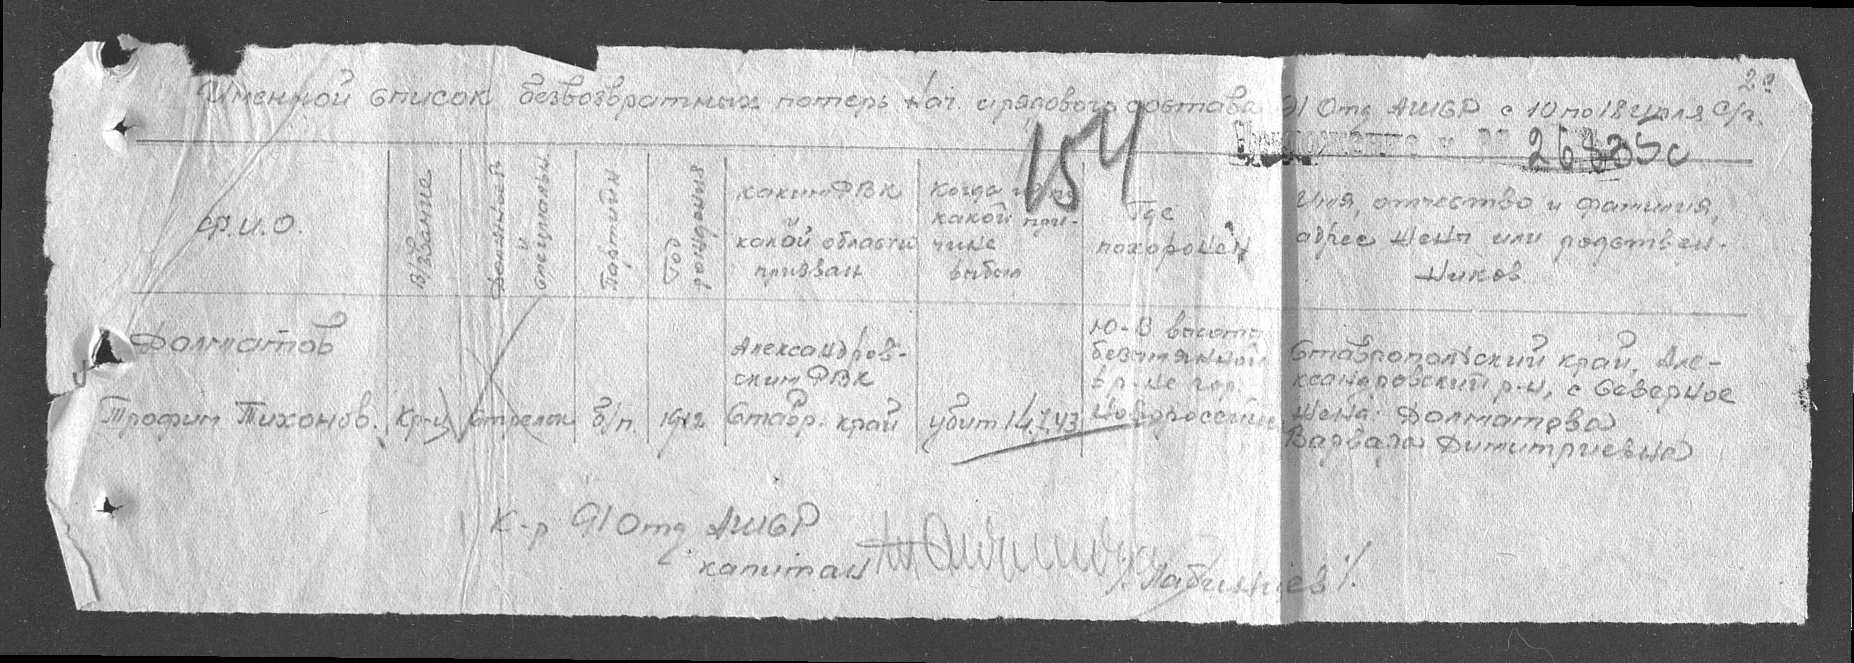 29
Именной список безвозвратных потерь нач. и рядового состава 91 Отд АШБР с 10 по 18 июля с/г.
154
26335с
Ф.И.О.
В/звание
Должность и специальн
Партийн
Год рождения
каким РВК
и
какой области
призван
Когда и по
какой при-
чине
выбыл
Где
похоронен
Имя, отчество и фамилия,
адрес жены или родствен-
ников
Долматов
Трофим Тихонов.
Кр-ц
стрелок
б/п.
1912
Александров-
ским РВК
Ставр. край
убит 14.7.43
Ю-В высоты
безымянной
в р-не гор.
Новороссийск
Ставропольский край, Але-
ксандровский р-н, с Северное
жена: Долматова
Варвара Димитриевна
К-р 91 Отд АШБР
капитан